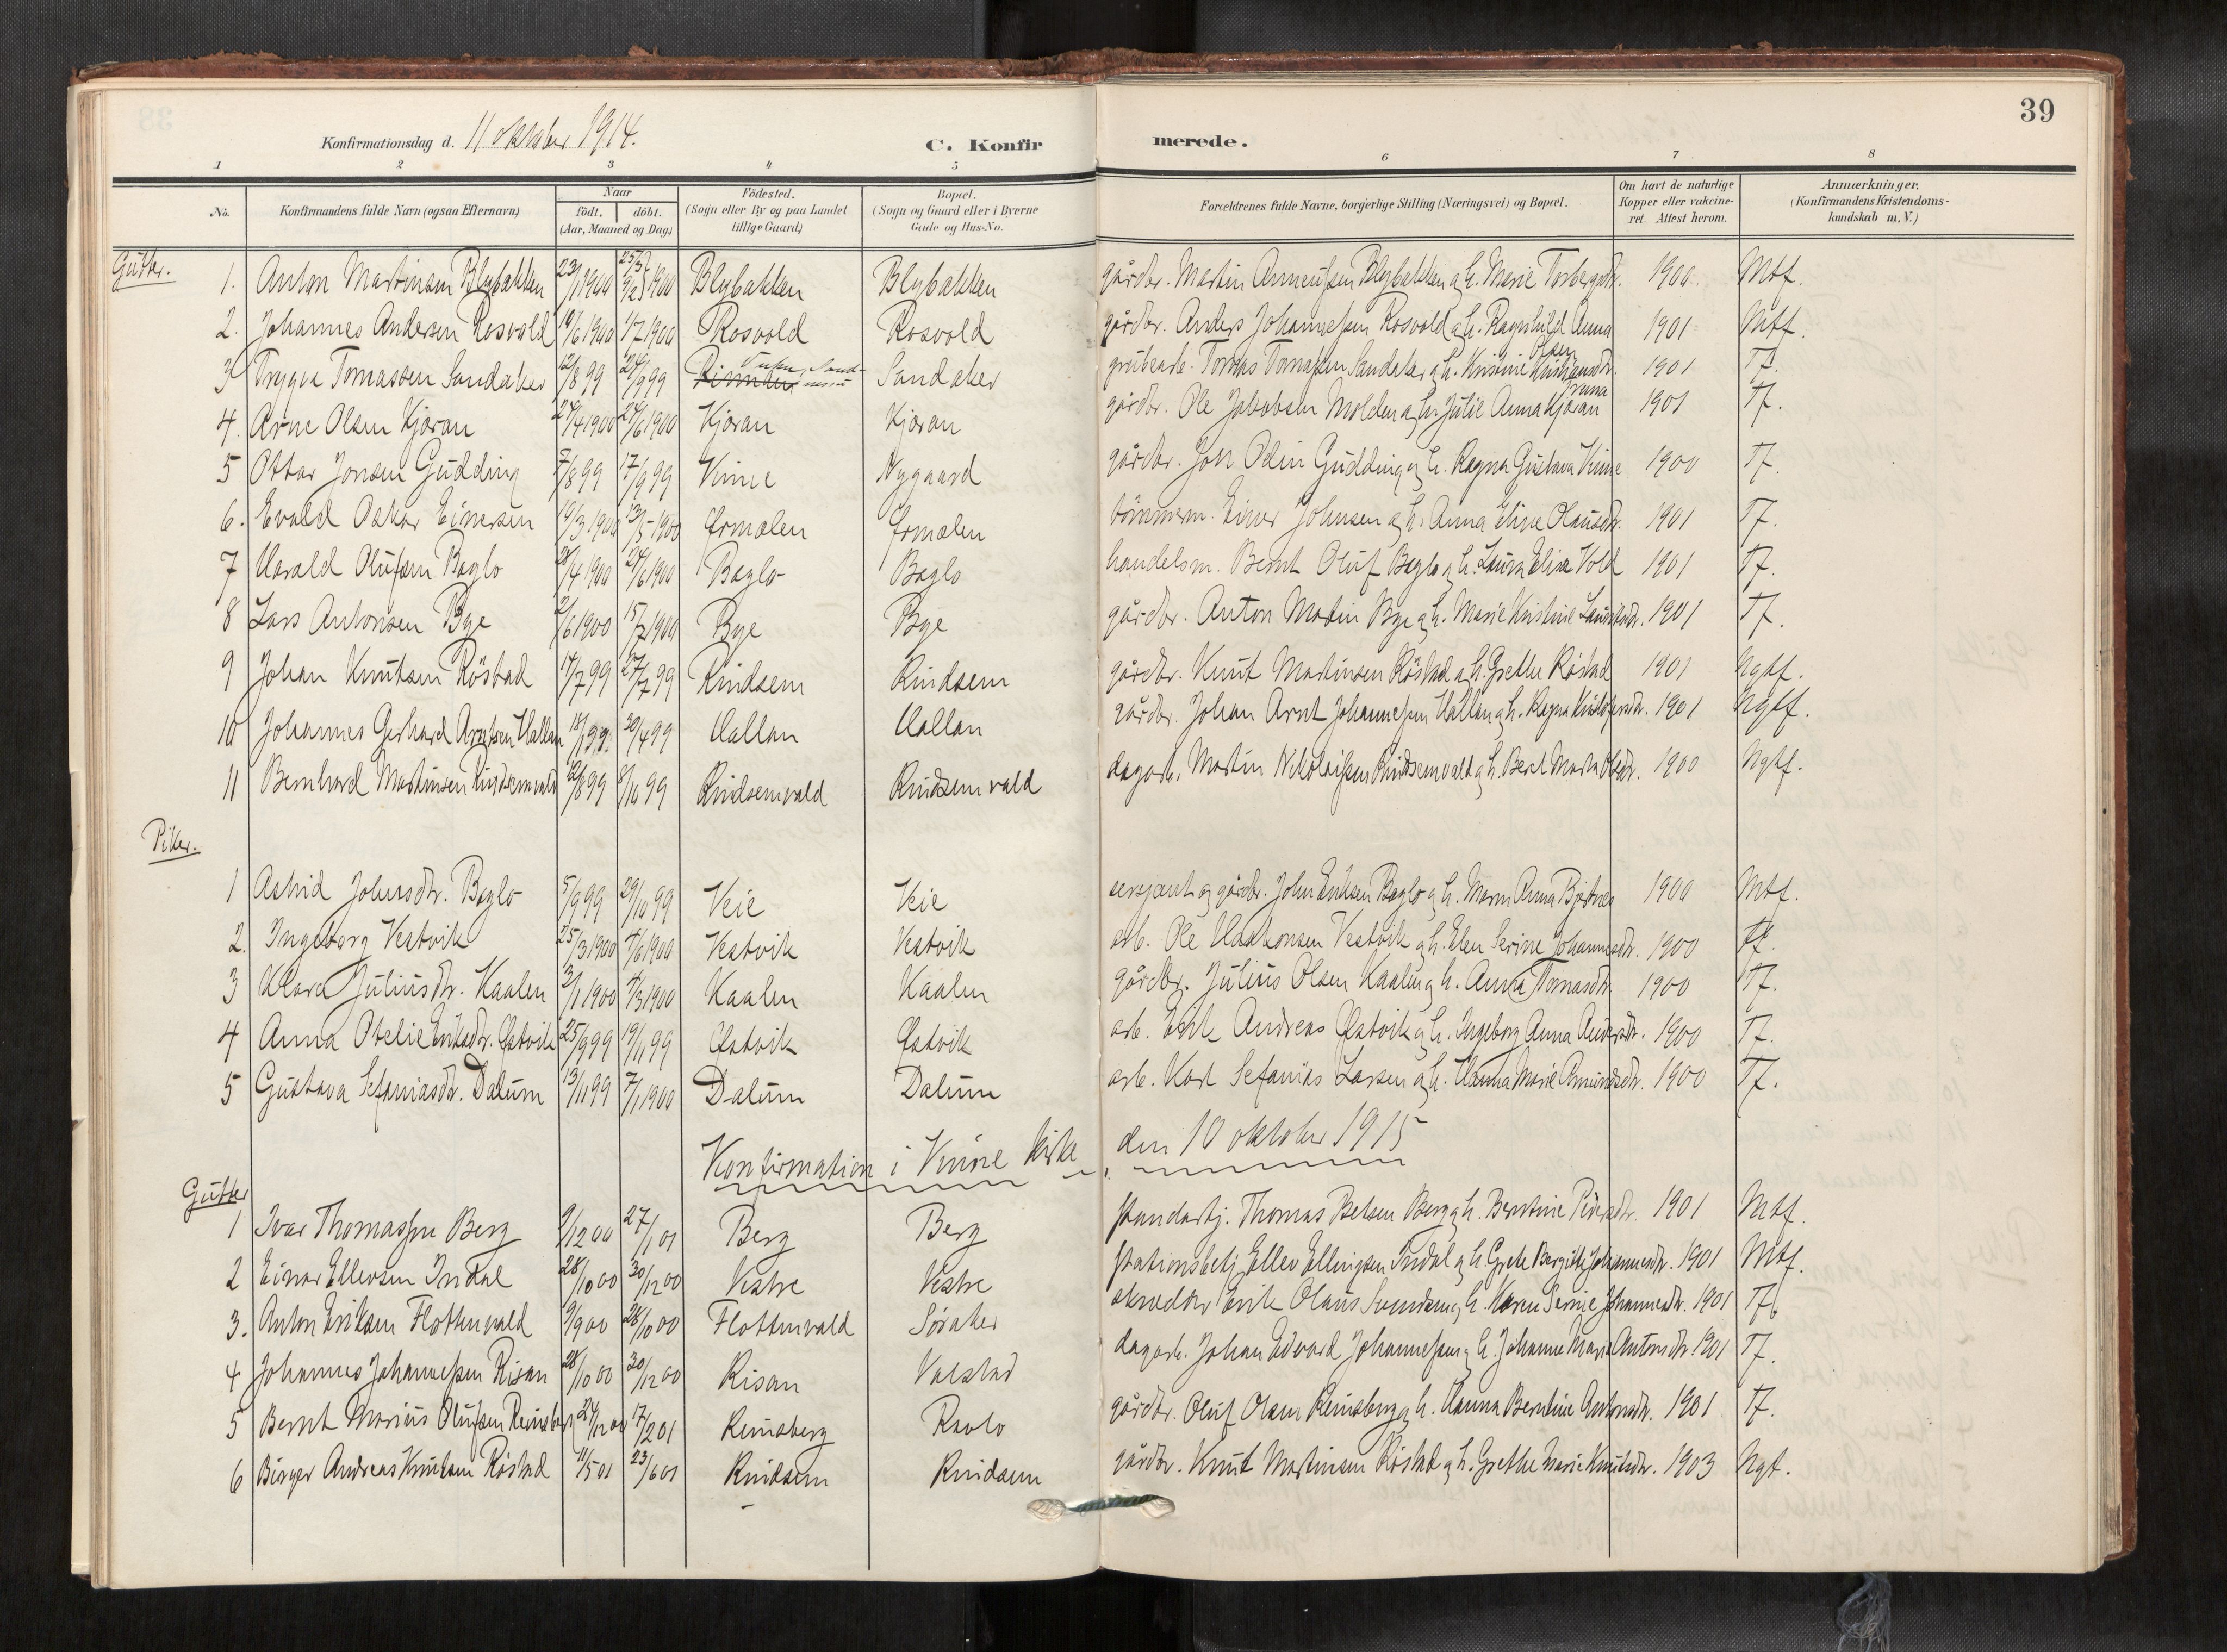 39
Konfirmationsdag d. 11 oktober 1914.
C. Konfirmerede.
1 2 3 4 5 6 7 8
No.
Konfirmandens fulde Navn (ogsaa Efternavn)
Naar
født. døbt.
(Aar, Maaned og Dag)
Fødested.
(Sogn eller By og paa Landet
tillige Gaard)
Bopæl.
(Sogn og Gaard eller i Byerne
Gade og Hus-No.
Forældrenes fulde Navne, borgerlige Stilling (Næringsvei) og Bopæl.
Om havt de naturlige
Kopper eller vakcine-
ret. Attest herom.
Anmærkninger.
(Konfirmandens Kristendoms-
kundskab m. V.)
Gutter.
1. Anton Martinsen Blybakken 23/1 1900 Blybakken Blybakken gårdbr. Martin Blybakken og h. Marie 1900. Mtf.
2. Johannes Andersen Rosvold 1900 1/7 1900 Rosvold Rosvold gårdbr. Anders Johannessen Rosvold og h. Ragnhild Anna 1901 Mtf.
3 Trygve Tomassen Sandaker 12/8 99 24/9 99 Sandaker grubearb. Tomas Tomassen Sandaker og h. Kristine Olsen 1901 Tf.
4. Arne Olsen Kjøran 24/4 1900 24/6 1900 Kjøran Kjøran gårdbr. Ole Jakobsen Molden og h. Julie Anna Kjøran 1901 Tf.
5 Ottar Jonsen Gudding 7/8 99 17/9 99 Vinne Nygaard gårdbr. Jon Odin Gudding og h. Ragna Gustava Vinne 1900 Tf.
6. Evald Oskar Einersen 19/3 1900 13/5 1900 Ørmælen Ørmælen tömmerm. Einer Johnsen og h. Anna Eline Olausdtr. 1901 Tf.
7 Harald Olufsen Baglo 28/4 1900 24/6 1900 Baglo Baglo handelsm. Bernt Oluf Baglo og h. Laura Elise Vold 1901 Tf.
8 Lars Antonsen Bye 2/6 1900 15/7 1900 Bye Bye gårdbr. Anton Martin Bye og h. Marie Kristine 1901 Tf.
9 Johan Knutsen Röstad 14/7 99 27/7 99 Rindsem Rindsem gårdbr. Knut Martinsen Röstad og h. Grethe Röstad 1901 Ngtf.
10 Johannes Gerhard Arntsen Hallan 18/1 99. 30/4 99 Hallan Hallan gårdbr. Johan Arnt Johannessen Hallan og h. Ragna Kristofersdtr. 1901 Ngtf.
11 Bernhard Martinsen Rindsemvald 12/8 99 8/10 99 Rindsemvald Rindsemvald dagarb. Martin Nikolaissen Rindsemvald og h. Beret Marta Olsdtr. 1900 Ngtf.
Piker.
1 Astrid Johnsdtr. Baglo 5/9 99 29/10 99 Veie Veie sersjant og gårdbr. John Eriksen Baglo og h. Anna 1900 Mtf.
2. Ingeborg Vestvik 25/3 1900 4/6 1900 Vestvik Vestvik arb. Ole Haakonsen Vestvik og h. Elen Serine Johannesdtr. 1900 Tf.
3 Klara Juliusdtr. Kaalen 3/1 1900 4/3 1900 Kaalen Kaalen gårdbr. Julius Olsen Kaalen og h. Anna Tomasdtr. 1900 Tf.
4 Anna Otelie Eriksdtr. Østvik 25/9 99 19/11 99 Østvik Østvik arb. Erik Andreas Østvik og h. Ingeborg Anna Andersdtr. 1900 Tf.
5 Gustava Sefaniasdtr. Dalum 13/11 99 7/1 1900 Dalum Dalum arb. Karl Sefanias Larsen og h. Hanna Marie Amundsdtr. 1900 Tf.
Konfirmation i Vinne kirke den 10 oktober 1915
Gutter
1 Ivar Thomassen Berg 9/12 00 27/1 01 Berg Berg Thomas Berg og h. Berntine Pedersdtr. 1901 Mtf.
2 Einar Ellevsen Indal 28/10 00 30/12 00 Vestre Vestre stationsbetj. Ellev Ellingsen Indal og h. Grete Bergitte Johannesdtr. 1901 Mtf.
3. Anton Eriksen Flottenvald 9/9 00 28/10 00 Flottenvald Søraker skredder Erik Olaus Svendsen og h. Karen Serine Johannesdtr. 1901 Tf.
4 Johannes Johannessen Risan 28/10 00 30/12 00 Risan Valstad dagarb. Johan Edvard Johannessen og h. Johanne Marie Antonsdtr. 1901 Tf.
5 Bernt Marius Olufsen Reinsberg 24/12 00 17/2 01 Reinsberg Ravlo gårdbr. Oluf Olsen Reinsberg og h. Hanna Berntine Antonsdtr. 1901 Tf.
6 Birger Andreas Knutsen Röstad 11/5 01 23/6 01 Rindsem Rindsem gårdbr. Knut Martinsen Röstad og h. Grethe Marie Knutsdtr. 1903 Ngt.